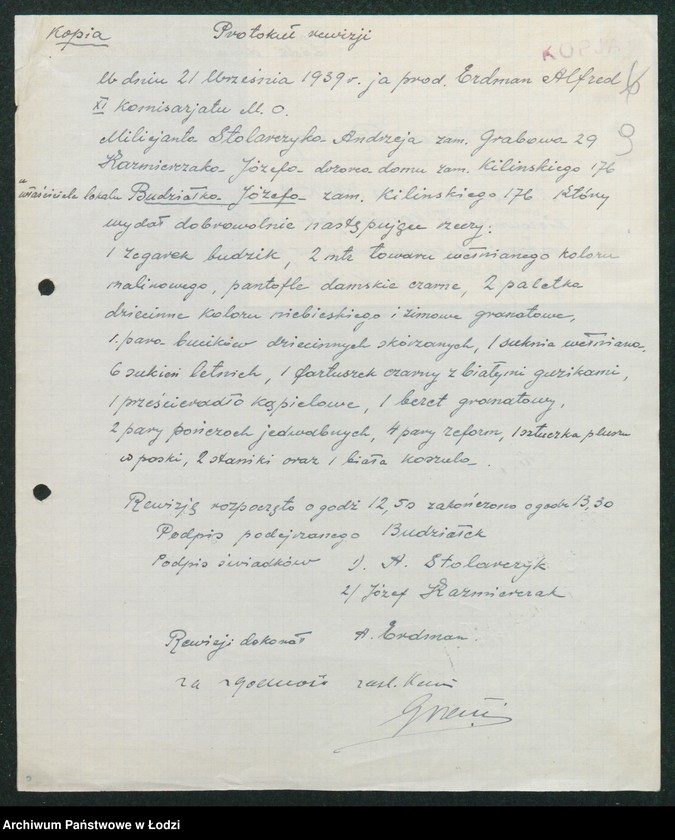 Kopia
Protokuł rewizji
9
W dniu 21 Września 1939 r. ja prod. Erdman Alfred
XI Komisarjatu M.O.
Milicjanta Stolarczyka Andrzeja zam. Grabowa 29
Kazmierczaka Józefa dozorca domu zam. Kilinskiego 176
u właściciela lokalu Budziałka Józefa zam. Kilinskiego 176 który
wydał dobrowolnie następujące rzeczy:
1 zegarek budzik, 2 mtr towaru wełnianego koloru
malinowego, pantofle damskie czarne, 2 paletka
dziecinne koloru niebieskiego i zimowe granatowe,
1. para bucików dziecinnych skórzanych, 1 suknia wełniana,
6 sukień letnich, 1 fartuszek czarny z białymi guzikami,
1 prześcieradło kąpielowe, 1 beret granatowy,
2 pary pończoch jedwabnych, 4 pary reform, 1 sztuczka pluszu
w paski, 2 staniki oraz 1 biała koszula.
Rewizję rozpoczęto o godz 12,50 zakończono o godz 13,30
Podpis podejrzanego Budziałek
Podpis świadków 1). A. Stolarczyk
2/ Józef Kazmierczak
Rewizji dokonał A. Erdman.
za zgodność zast. Kier.
Archiwum Państwowe w Łodzi